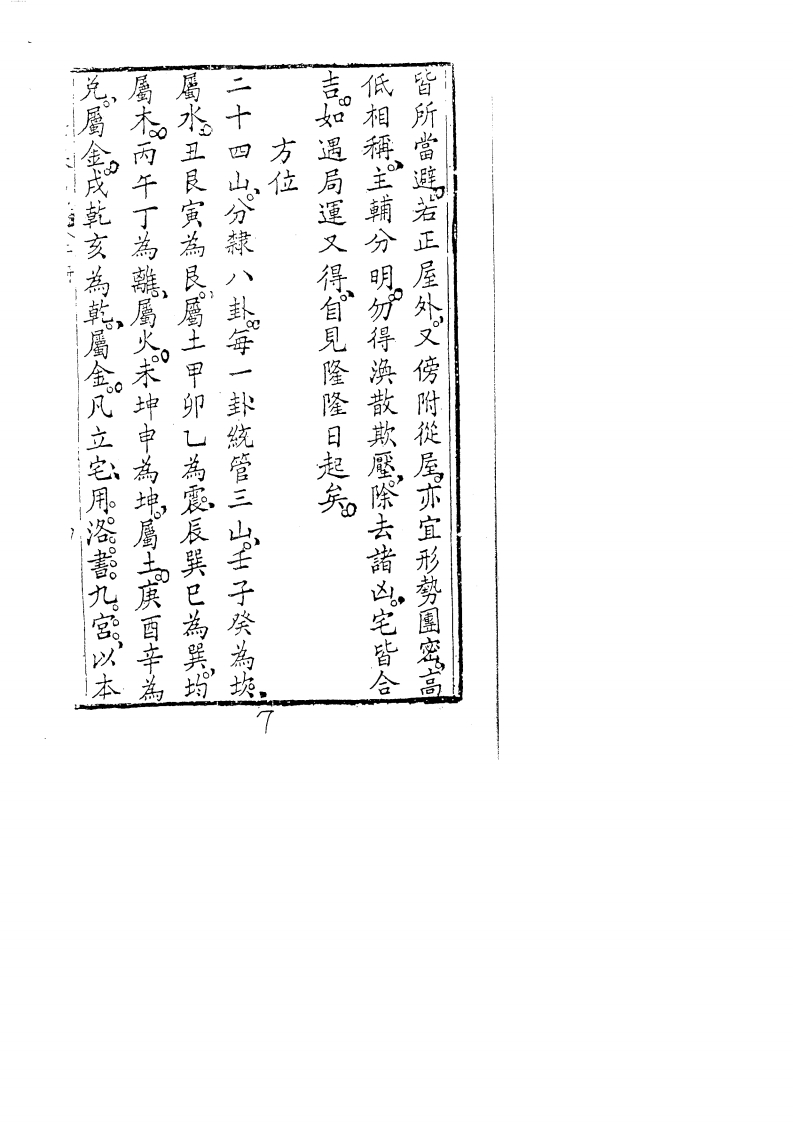 皆所當避。若正屋外、又傍附從屋、亦宜形勢團密、高
低相稱、主輔分明。勿得渙散欺壓、除去諸凶、宅皆合
吉。如遇局運又得、自見隆隆日起矣。
方位
二十四山、分隸八卦。每一卦統管三山、壬子癸為坎、
屬水。丑艮寅為艮、屬土甲卯乙為震、辰巽巳為巽、均
屬木。丙午丁為離、屬火。未坤申為坤、屬土。庚酉辛為
兌、屬金。戌乾亥為乾、屬金。凡立宅、用洛書九宮、以本
7